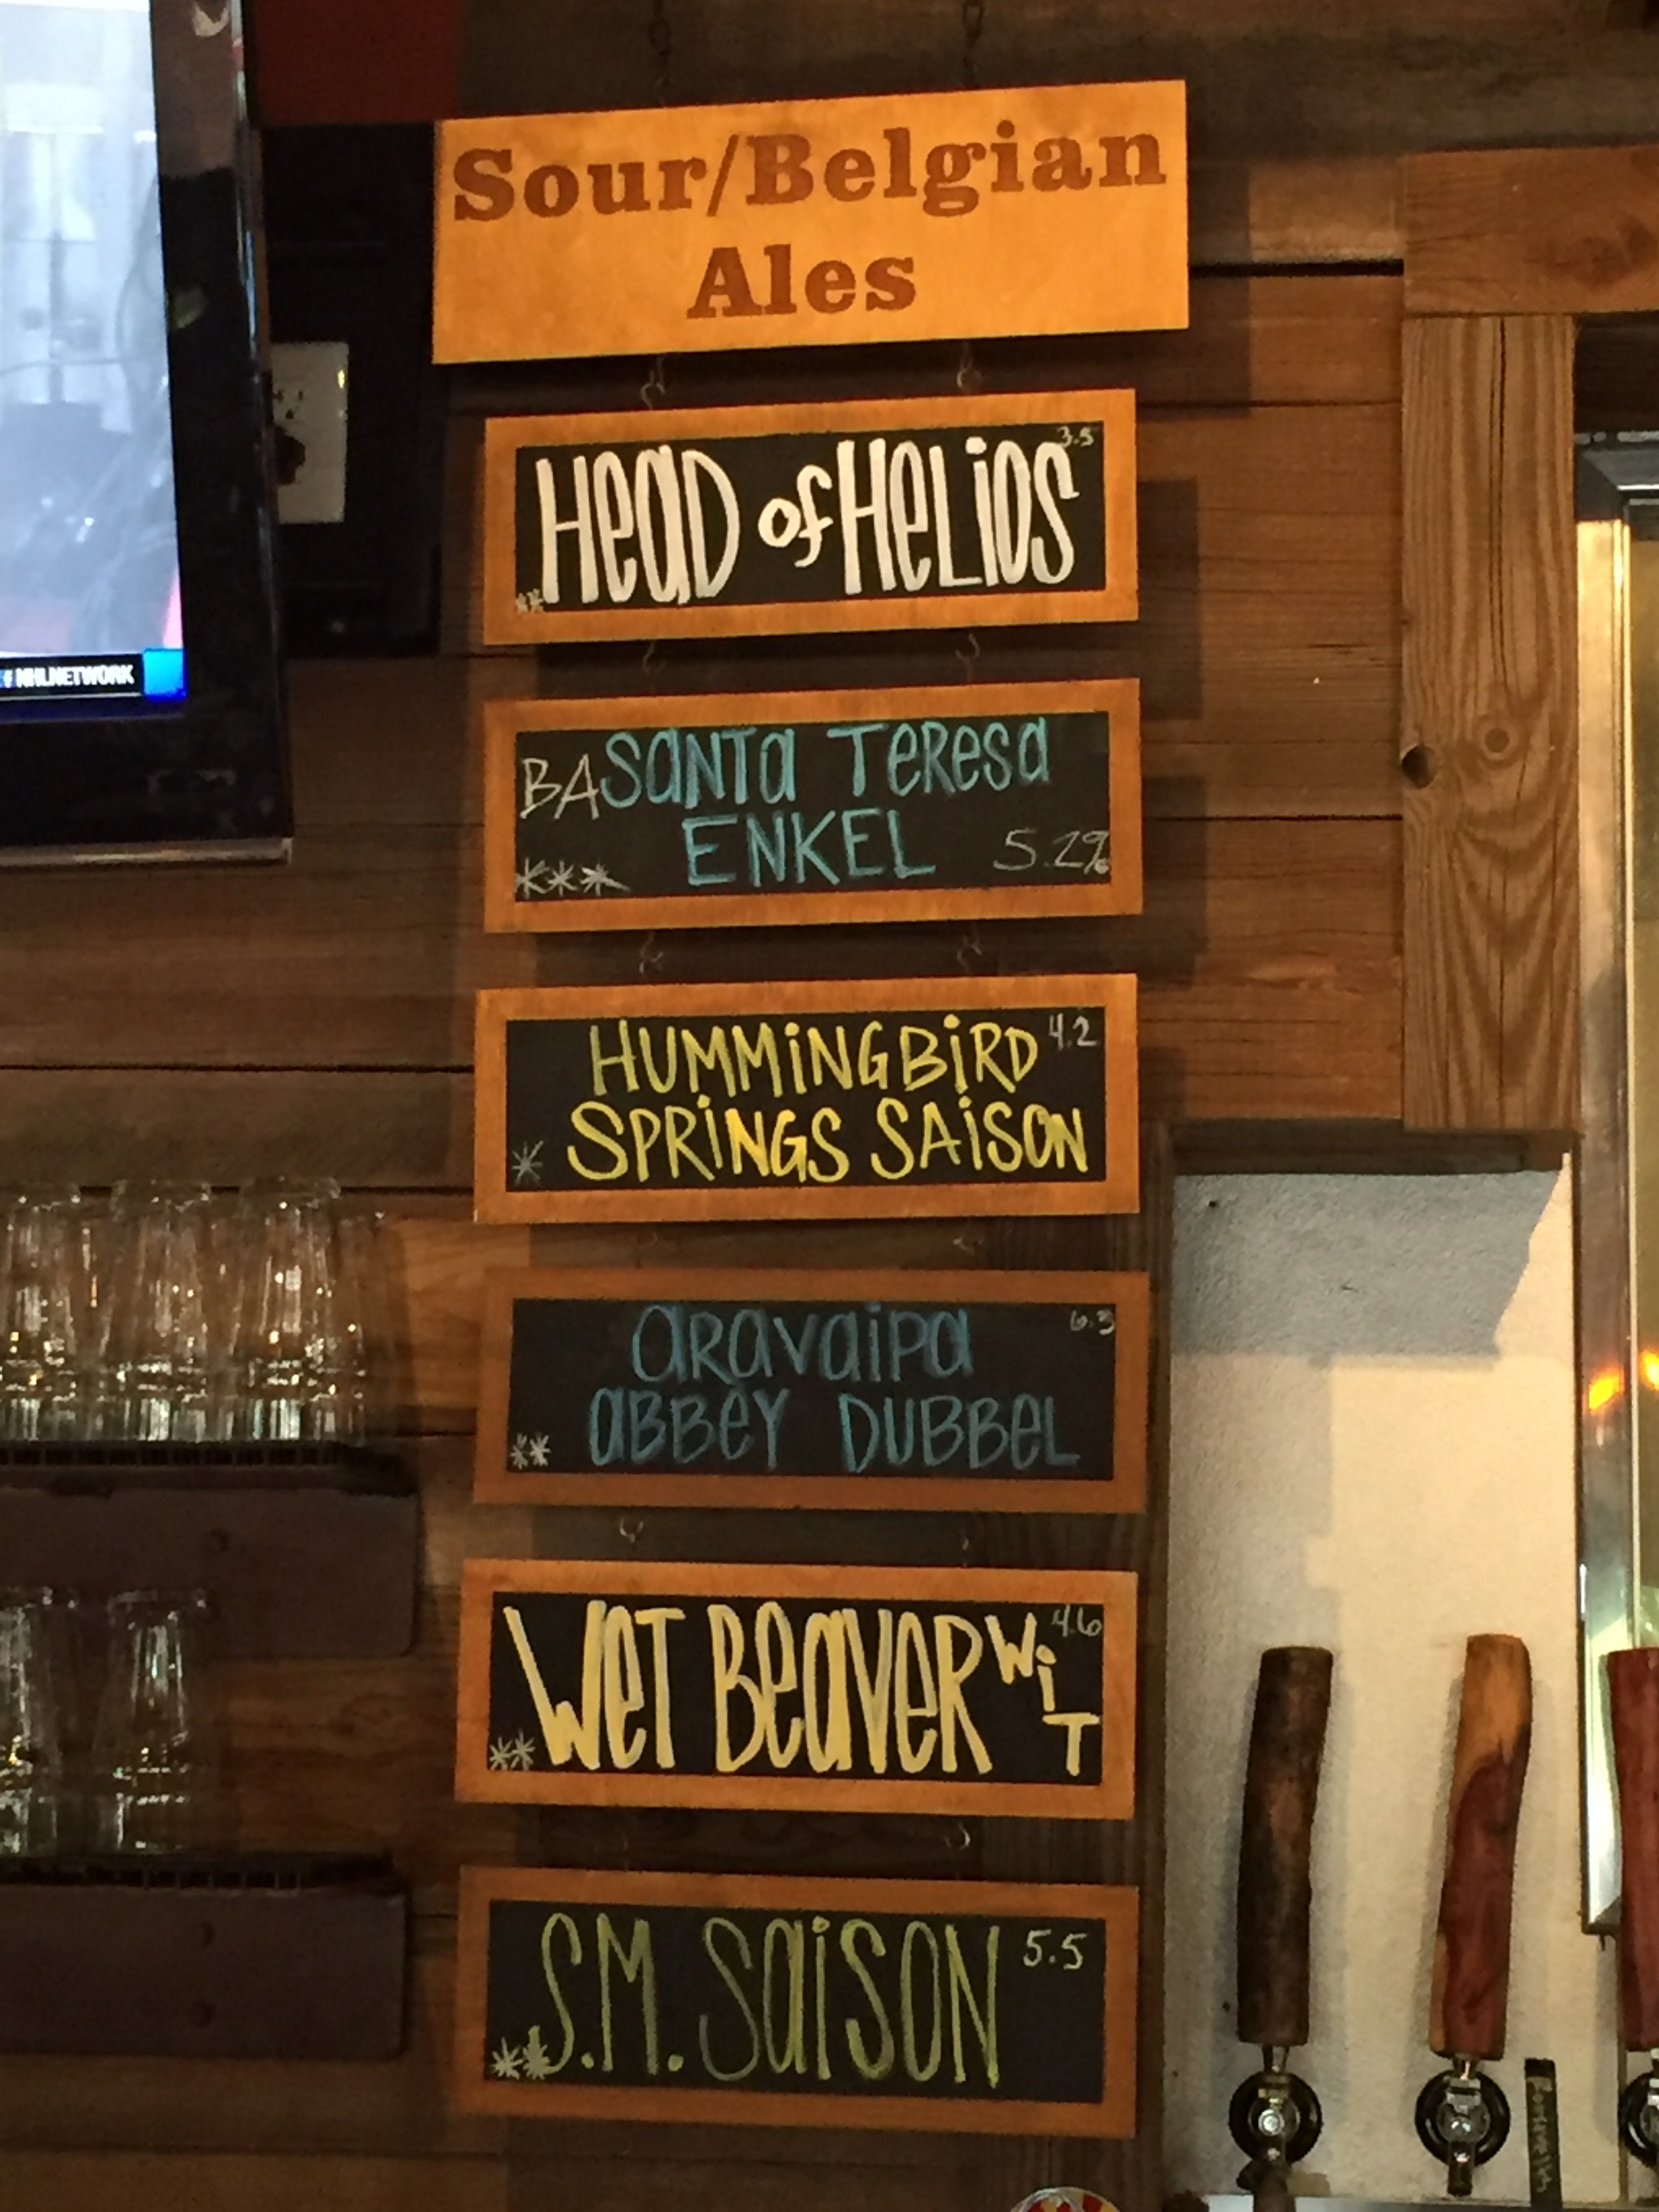 Sour/Belgian
Ales
HeaD of HeLios
3.5
**
BA SaNTa TeResa
ENKEL
5.2%
***
HUMMiNGBiRD
4.2
SPRiNGS SAiSON
*
aRavaiPa
6.3
aBBeY DUBBeL
**
WeT BeaveR WiT
4.6
**
S.M. SaiSON
5.5
**
NHLNETWORK